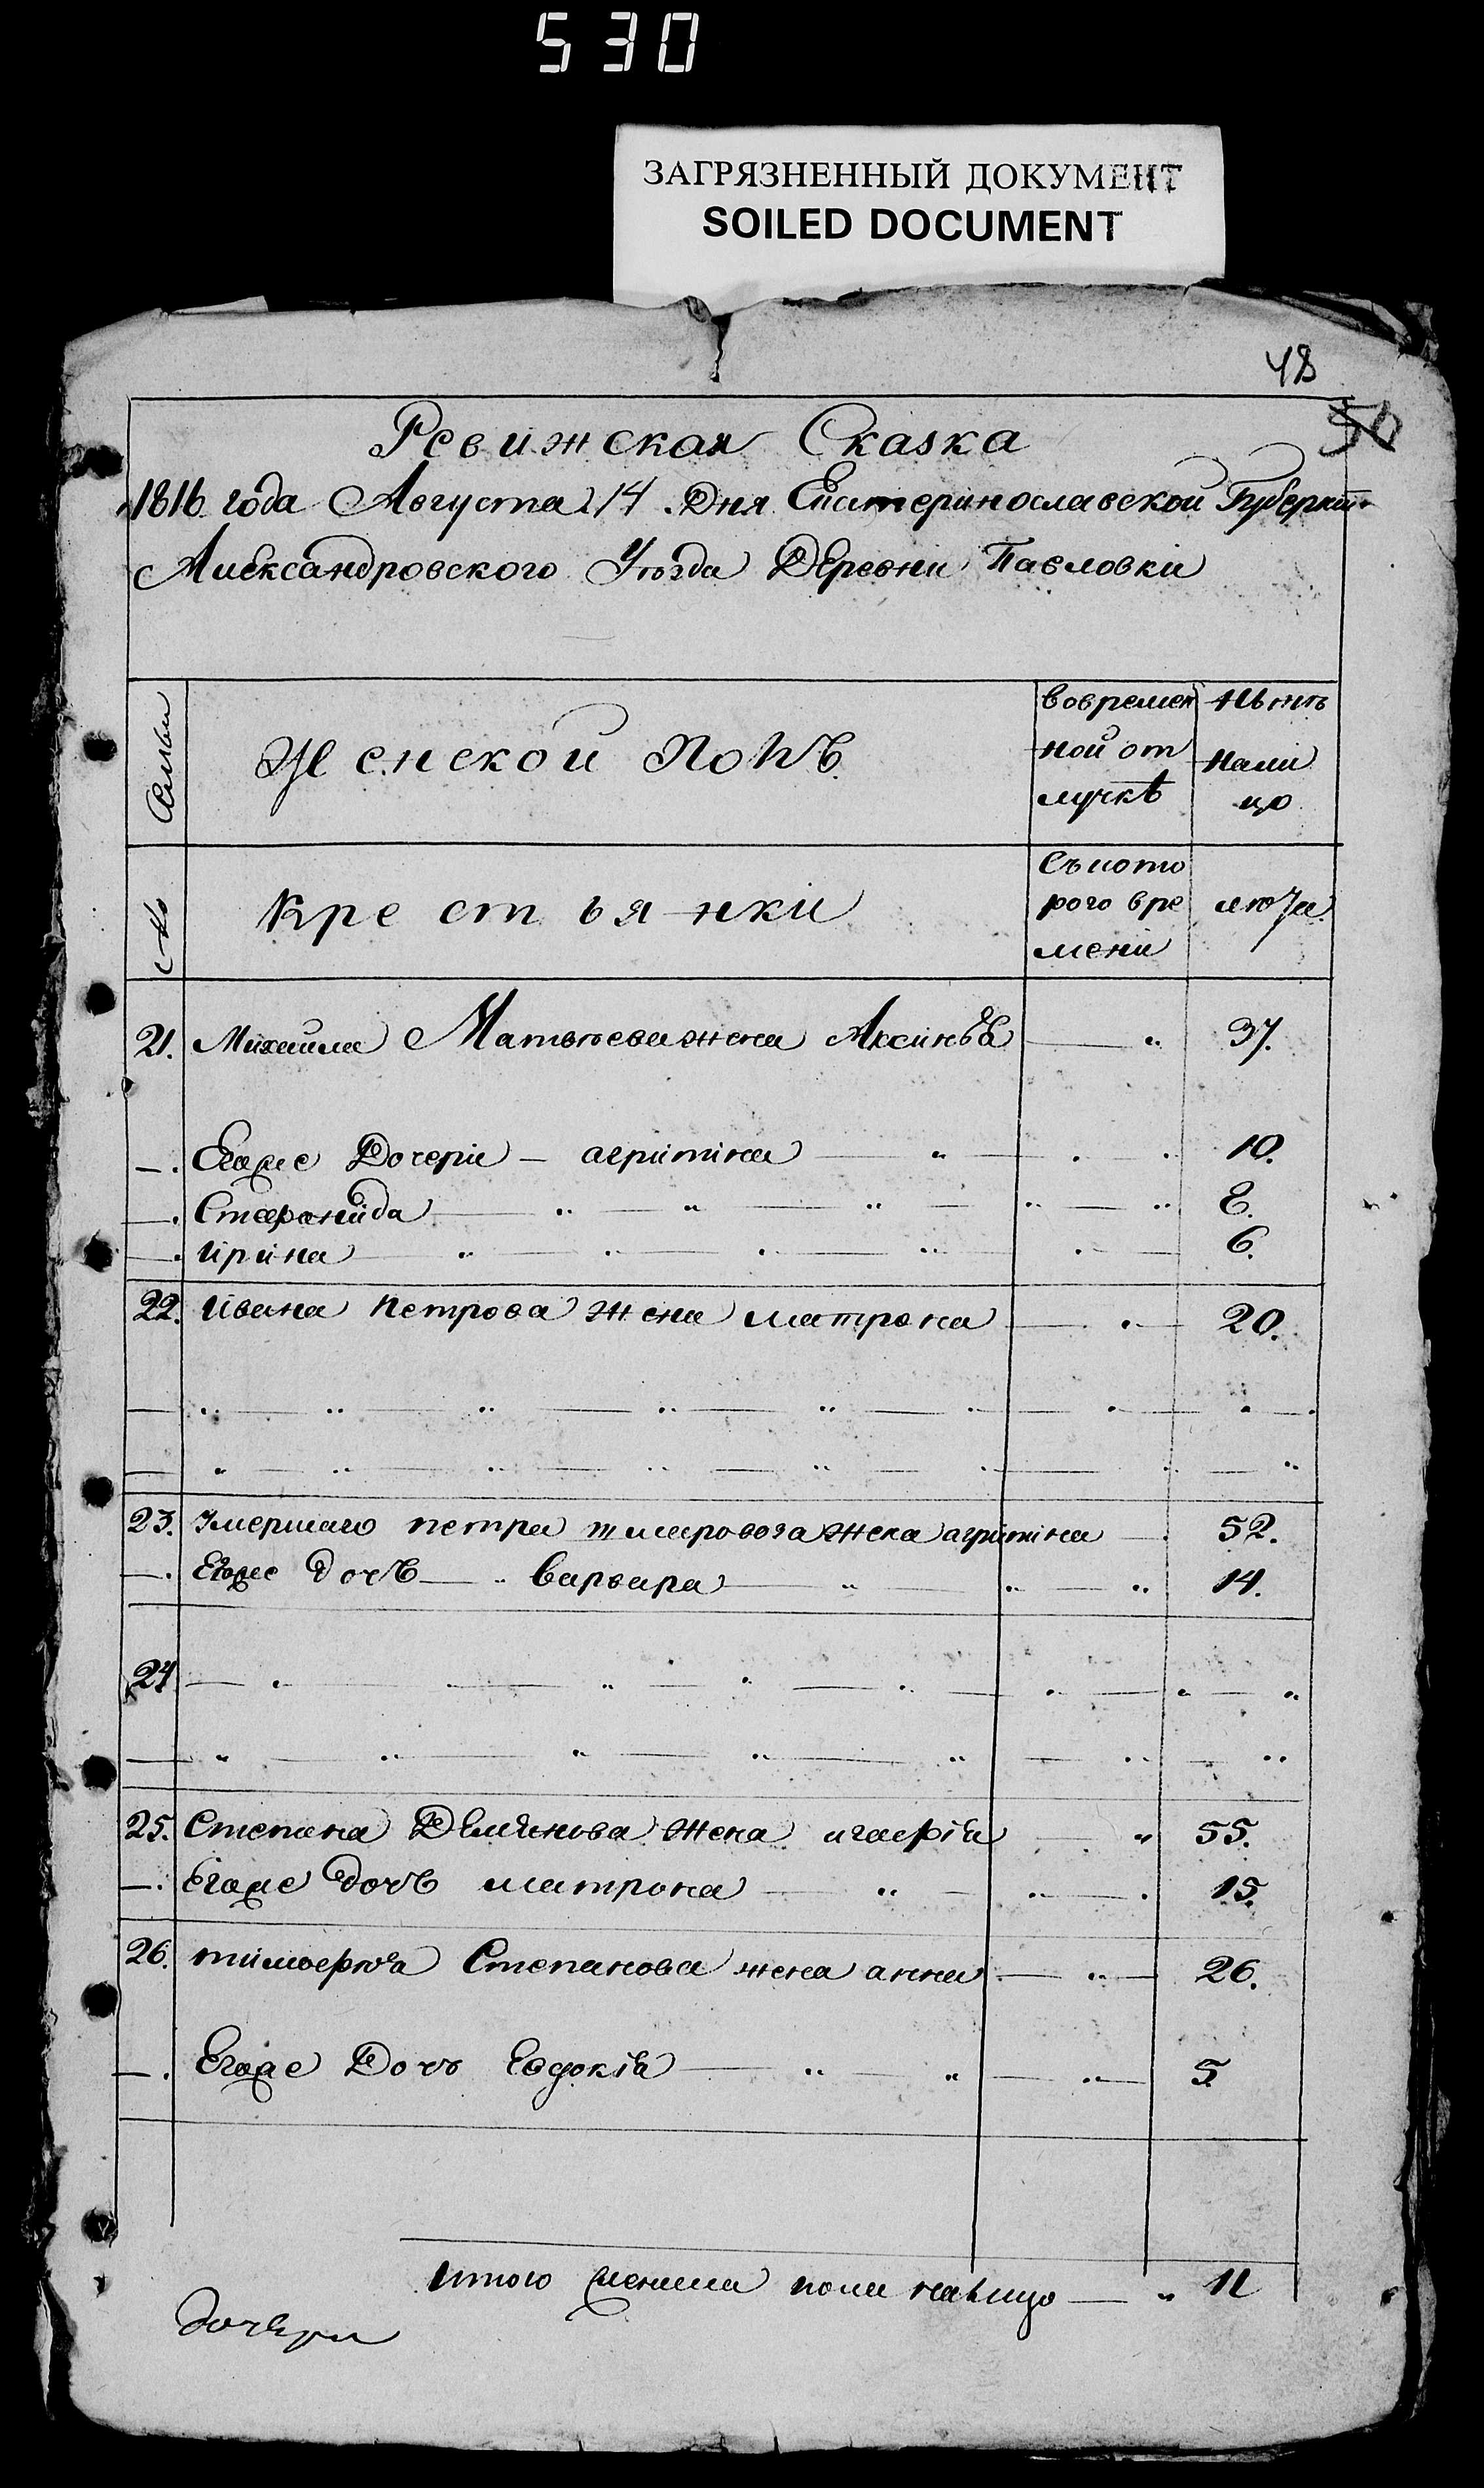 530
ЗАГРЯЗНЕННЫЙ ДОКУМЕНТ
SOILED DOCUMENT
48
50
Ревижская Сказка
1816 года Августа 14 Дня Екатеринославской Губернии
Александровского Уѣзда Деревни Павловки
Семьи
Женской Полъ
вовремен
ной от
лучкѣ
Нынѣ
нали
цо
№
Крестьянки
Съкото
рого вре
мени
лѣта
21. Михайла Матвѣева жена Аксинья 37.
Егоже Дочери — агрипина 10.
Стефанида 8.
ирина 6.
22. ивана Петрова жена матрона 20.
23. Умершаго петра жена агрипина 52.
Егоже дочь варвара 14.
24
25. Степана Демьянова жена 55.
Егоже дочь матрона 15.
26. тимоефѣа Степанова жена анна 26.
Егоже Дочь Евдокія 5.
итого женска пола налицо 11
дочери